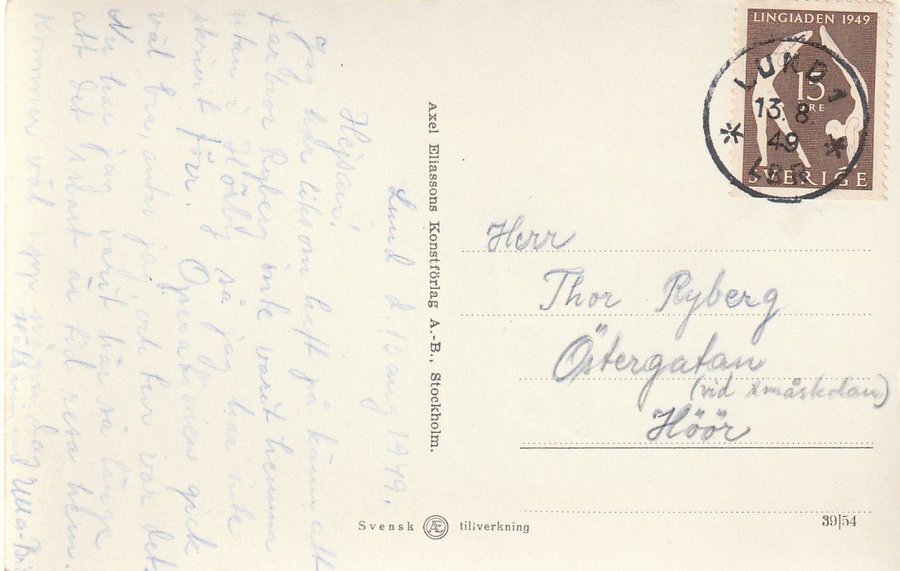 Lund d. 13 aug 1949.
Hejsan!
Jag har liksom haft på känn att
farbror Ryberg inte varit hemma
utan i Hörby så jag har inte
skrivit förr. Operationen gick
väl bra, antar jag,
Nu har jag varit här så länge
att det snart är tid resa hem.
Kommer väl upp någon dag
Ulla-Bri
Axel Eliassons Konstförlag A.-B., Stockholm.
LINGIADEN 1949
15
ÖRE
SVERIGE
LUND 1
13.8
49
Herr
Thor Ryberg
Östergatan
(vid småskolan)
Höör
Svensk Æ tillverkning
39|54